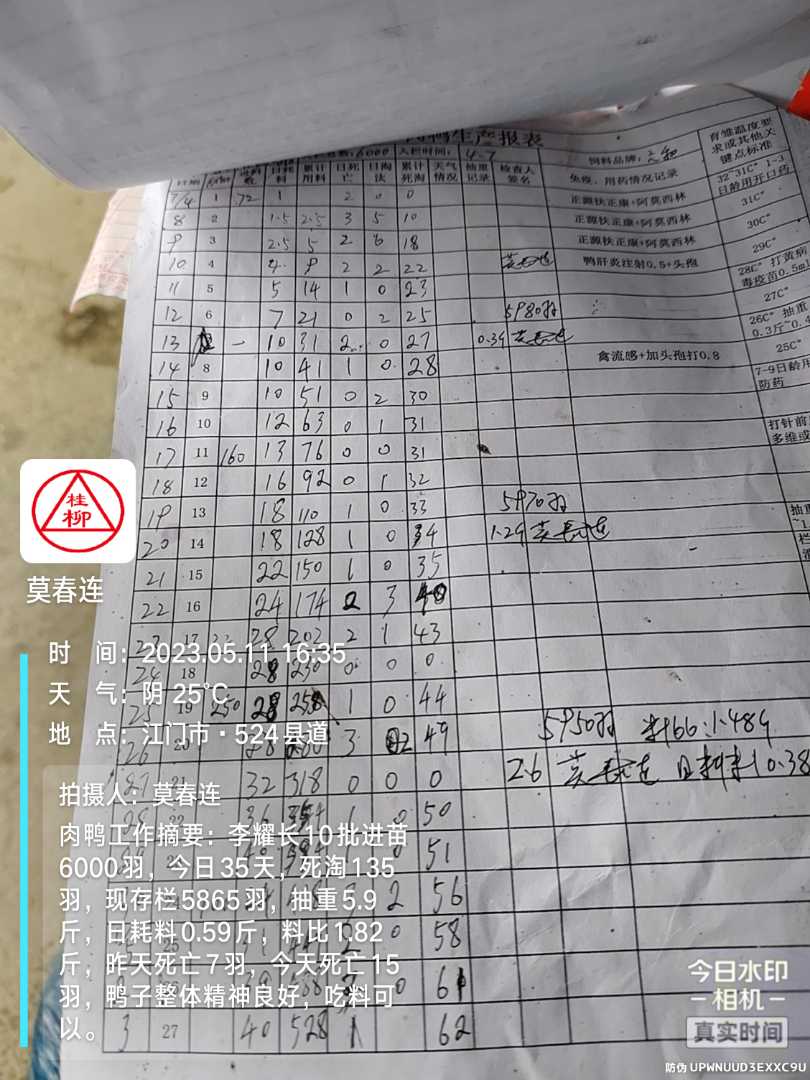 生产报表
6000 入栏时间: 4-7
日耗料 累计用料 日死亡 日淘汰 累计死淘 天气情况 抽重记录 检查人签名 饲料品牌: 免疫、用药情况记录 育雏温度要求或其他关键点标准
7/4 1 72 1 2 0 0 正源扶正康+阿莫西林 32~31C° 1-3日龄用开口药
8 2 1.5 2.5 3 5 10 正源扶正康+阿莫西林 31C°
9 3 2.5 5 2 6 18 正源扶正康+阿莫西林 30C°
10 4 4 9 2 2 22 莫春连 鸭肝炎注射0.5+头孢 29C°
11 5 5 14 1 0 23 28C° 打黄病毒疫苗0.5ml
12 6 7 21 0 2 25 5980羽 27C°
13 一 10 31 2 0 27 0.39 莫春连 26C° 抽重0.3斤~0.4
14 8 10 41 1 0 28 禽流感+加头孢打0.8 25C°
15 9 10 51 0 2 30 7-9日龄用防药
16 10 12 63 0 1 31
17 11 160 13 76 0 0 31 打针前多维或
18 12 16 92 0 1 32
19 13 18 110 1 0 33 5970羽
20 14 18 128 1 0 34 1.29 莫春连
21 15 22 150 1 0 35
22 16 24 174 2 3 40
23 17 28 202 2 1 43
24 18 28 230 0 0 0
25 19 250 28 258 1 0 44
26 20 28 3 2 49 5950羽 料66:1.489
27 21 32 318 0 0 0 2.6 莫春连 日料 0.38
22 36 354 1 0 50
0 51
2 56
25 0 58
0 61
3 27 40 528 1 62
桂柳
莫春连
时 间: 2023.05.11 16:35
天 气: 阴 25℃
地 点: 江门市·524县道
拍摄人: 莫春连
肉鸭工作摘要: 李耀长10批进苗
6000羽，今日35天，死淘135
羽，现存栏5865羽，抽重5.9
斤，日耗料0.59斤，料比1.82
斤，昨天死亡7羽，今天死亡15
羽，鸭子整体精神良好，吃料可
以。
今日水印
相机
真实时间
防伪 UPWNUUD3EXXC9U